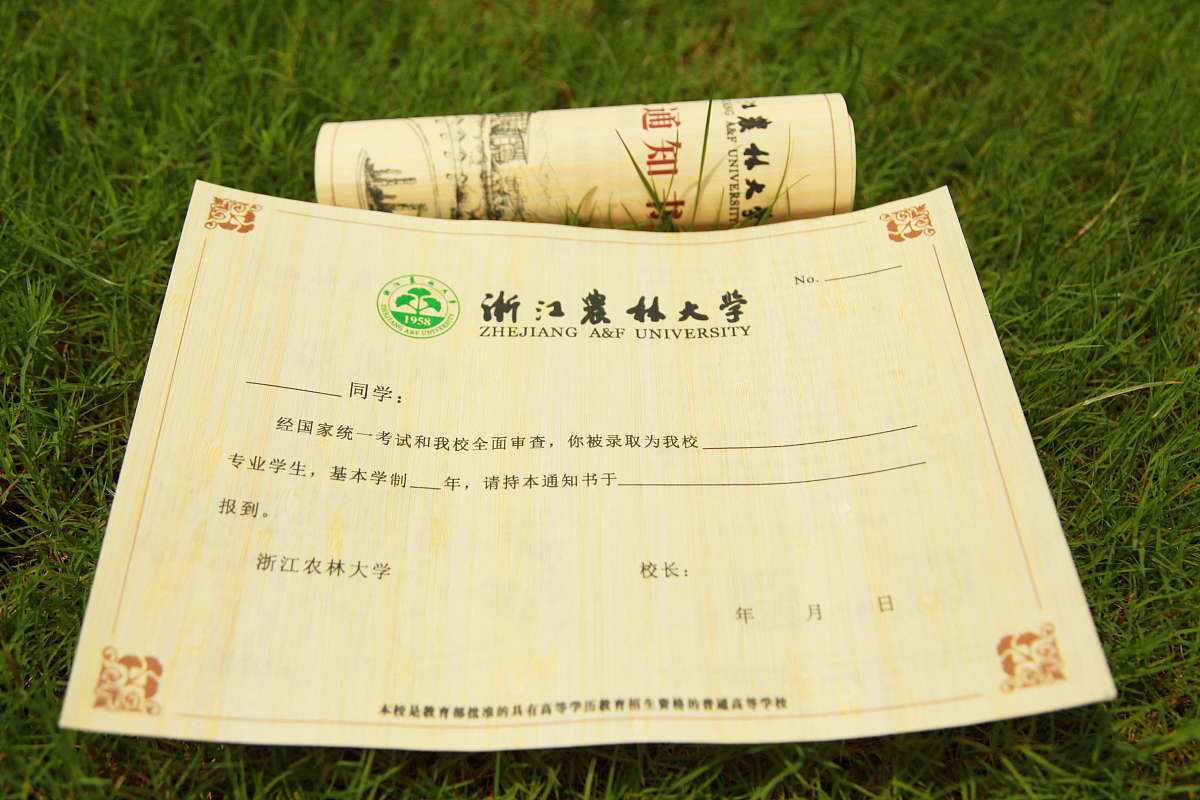 通知书
江农林大学
JIANG A&F UNIVERSITY
No.
浙江农林大学
ZHEJIANG A&F UNIVERSITY
1958
浙江農林大学
ZHEJIANG A&F UNIVERSITY
同学：
经国家统一考试和我校全面审查，你被录取为我校
专业学生，基本学制 年，请持本通知书于
报到。
浙江农林大学 校长：
年 月 日
本校是教育部批准的具有高等学历教育招生资格的普通高等学校